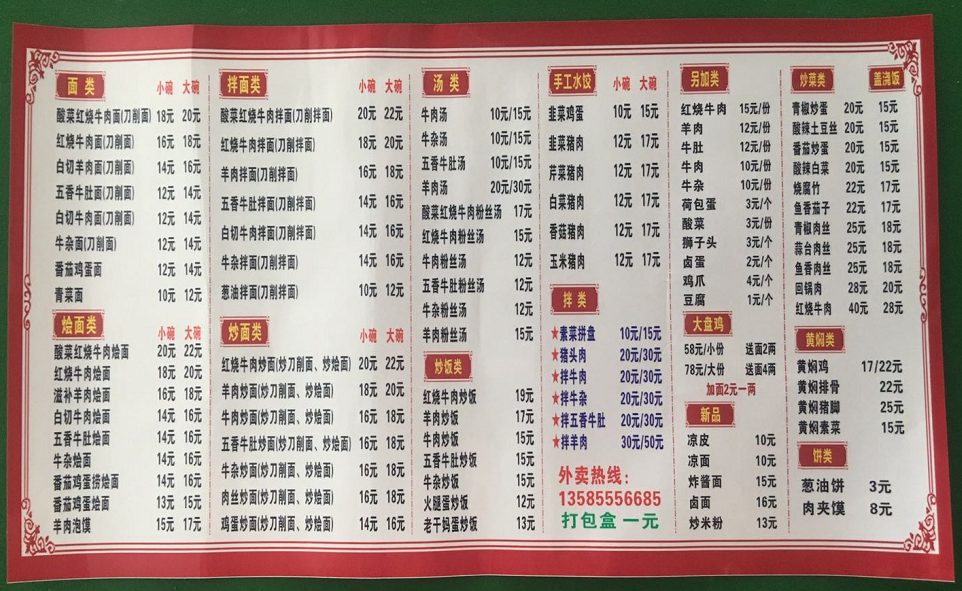 面 类 小碗 大碗
酸菜红烧牛肉面(刀削面) 18元 20元
红烧牛肉面(刀削面) 16元 18元
白切羊肉面(刀削面) 14元 16元
五香牛肚面(刀削面) 12元 14元
白切牛肉面(刀削面) 12元 14元
牛杂面(刀削面) 12元 14元
番茄鸡蛋面 12元 14元
青菜面 10元 12元
烩面类 小碗 大碗
酸菜红烧牛肉烩面 20元 22元
红烧牛肉烩面 18元 20元
滋补羊肉烩面 16元 18元
白切牛肉烩面 14元 16元
五香牛肚烩面 14元 16元
牛杂烩面 14元 16元
番茄鸡蛋捞烩面 14元 16元
番茄鸡蛋烩面 13元 15元
羊肉泡馍 15元 17元
拌面类 小碗 大碗
酸菜红烧牛肉拌面(刀削拌面) 20元 22元
红烧牛肉拌面(刀削拌面) 18元 20元
羊肉拌面(刀削拌面) 16元 18元
五香牛肚拌面(刀削拌面) 14元 16元
白切牛肉拌面(刀削拌面) 14元 16元
牛杂拌面(刀削拌面) 14元 16元
葱油拌面(刀削拌面) 10元 12元
炒面类 小碗 大碗
红烧牛肉炒面(炒刀削面、炒烩面) 20元 22元
羊肉炒面(炒刀削面、炒烩面) 18元 20元
牛肉炒面(炒刀削面、炒烩面) 16元 18元
五香牛肚炒面(炒刀削面、炒烩面) 16元 18元
牛杂炒面(炒刀削面、炒烩面) 16元 18元
肉丝炒面(炒刀削面、炒烩面) 16元 18元
鸡蛋炒面(炒刀削面、炒烩面) 14元 16元
汤 类
牛肉汤 10元/15元
牛杂汤 10元/15元
五香牛肚汤 10元/15元
羊肉汤 20元/30元
酸菜红烧牛肉粉丝汤 17元
红烧牛肉粉丝汤 15元
牛肉粉丝汤 12元
五香牛肚粉丝汤 12元
牛杂粉丝汤 12元
羊肉粉丝汤 15元
炒饭类
红烧牛肉炒饭 19元
羊肉炒饭 17元
牛肉炒饭 15元
五香牛肚炒饭 15元
牛杂炒饭 15元
火腿蛋炒饭 12元
老干妈蛋炒饭 13元
手工水饺 小碗 大碗
韭菜鸡蛋 10元 15元
韭菜猪肉 12元 17元
芹菜猪肉 12元 17元
白菜猪肉 12元 17元
香菇猪肉 12元 17元
玉米猪肉 12元 17元
拌 类
★素菜拼盘 10元/15元
★猪头肉 20元/30元
★拌牛肉 20元/30元
★拌牛杂 20元/30元
★拌五香牛肚 20元/30元
★拌羊肉 30元/50元
外卖热线:
13585556685
打包盒 一元
另加类
红烧牛肉 15元/份
羊肉 12元/份
牛肚 12元/份
牛肉 10元/份
牛杂 10元/份
荷包蛋 3元/个
酸菜 3元/份
狮子头 3元/个
卤蛋 2元/个
鸡爪 4元/个
豆腐 1元/个
大盘鸡
58元/小份 送面2两
78元/大份 送面4两
加面2元一两
新品
凉皮 10元
凉面 10元
炸酱面 15元
卤面 16元
炒米粉 13元
炒菜类 盖浇饭
青椒炒蛋 20元 15元
酸辣土豆丝 20元 15元
番茄炒蛋 20元 15元
酸辣白菜 20元 15元
烧腐竹 22元 17元
鱼香茄子 22元 17元
青椒肉丝 25元 18元
蒜台肉丝 25元 18元
鱼香肉丝 25元 18元
回锅肉 28元 20元
红烧牛肉 40元 28元
黄焖类
黄焖鸡 17/22元
黄焖排骨 22元
黄焖猪脚 25元
黄焖素菜 15元
饼类
葱油饼 3元
肉夹馍 8元